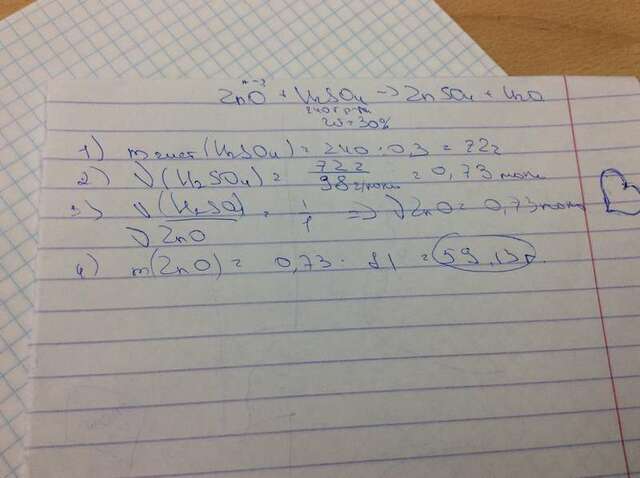 m-?
ZnO + H2SO4 → ZnSO4 + H2O
240г р-ра
w=30%
1) mчист (H2SO4) = 240 · 0,3 = 72г
2) ν (H2SO4) = 72г / 98г/моль = 0,73 моль
3) ν (H2SO4) / ν ZnO = 1/1 => ν ZnO = 0,73 моль
4) m(ZnO) = 0,73 · 81 = 59,13г.